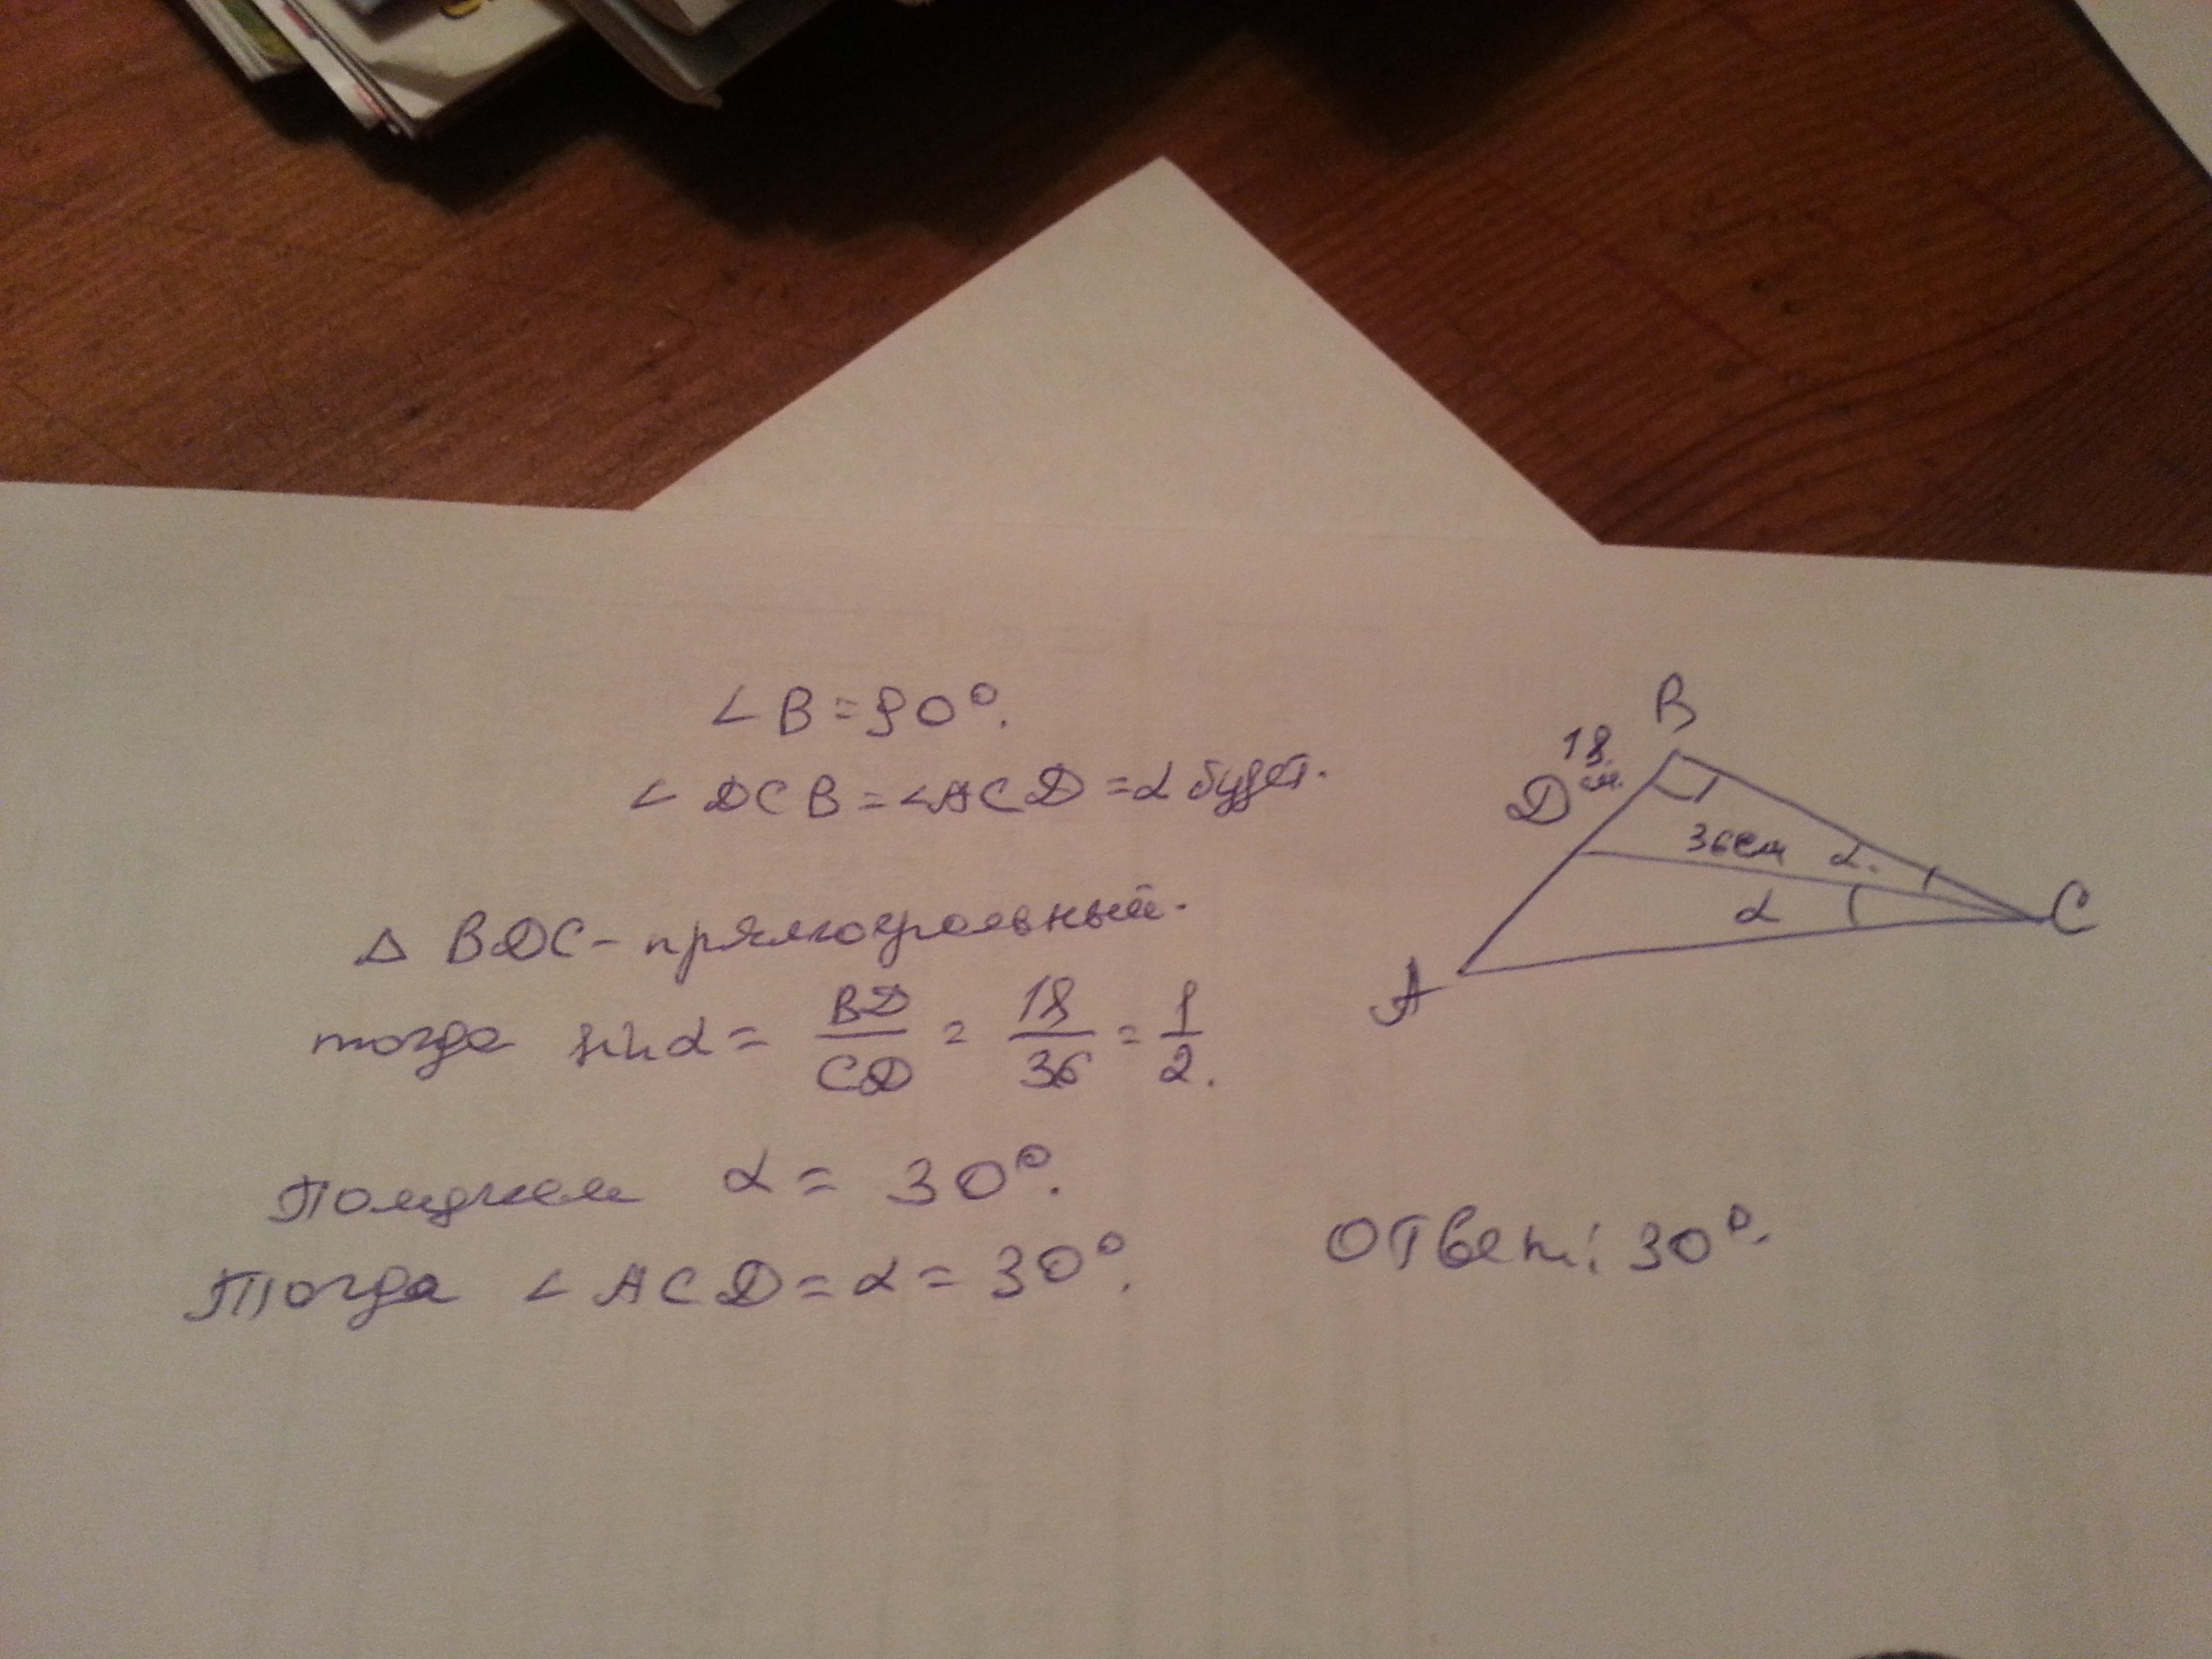 ∠ B = 90°.
∠ DCB = ∠ACD = α будет.
Δ BDC - прямоугольный.
тогда sin α = BD/CD = 18/36 = 1/2.
Получаем α = 30°.
Тогда ∠ ACD = α = 30°.
Ответ: 30°.
B
18
см.
D
36см α.
α
C
A